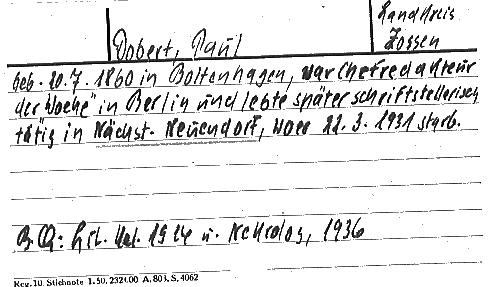 Landkreis
Dobert, Paul
Zossen
geb. 20.7. 1860 in Boltenhagen, war Chefredakteur
der "Woche" in Berlin und lebte später schriftstellerisch
tätig in Nächst-Neuendorf, wo er 22. 3. 1931 starb.
B.Q.: Lit. Kal. 1924 u. Nekrolog, 1936
Reg. 10. Stichnote 1. 50. 2321.00 A. 803. S. 4062